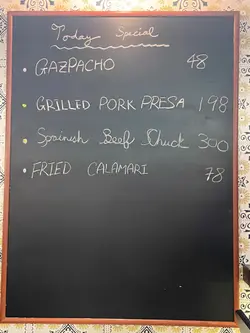 Today Special
• GAZPACHO 48
• GRILLED PORK PRESA 198
• Spainish Beef Chuck 300
• FRIED CALAMARI 78